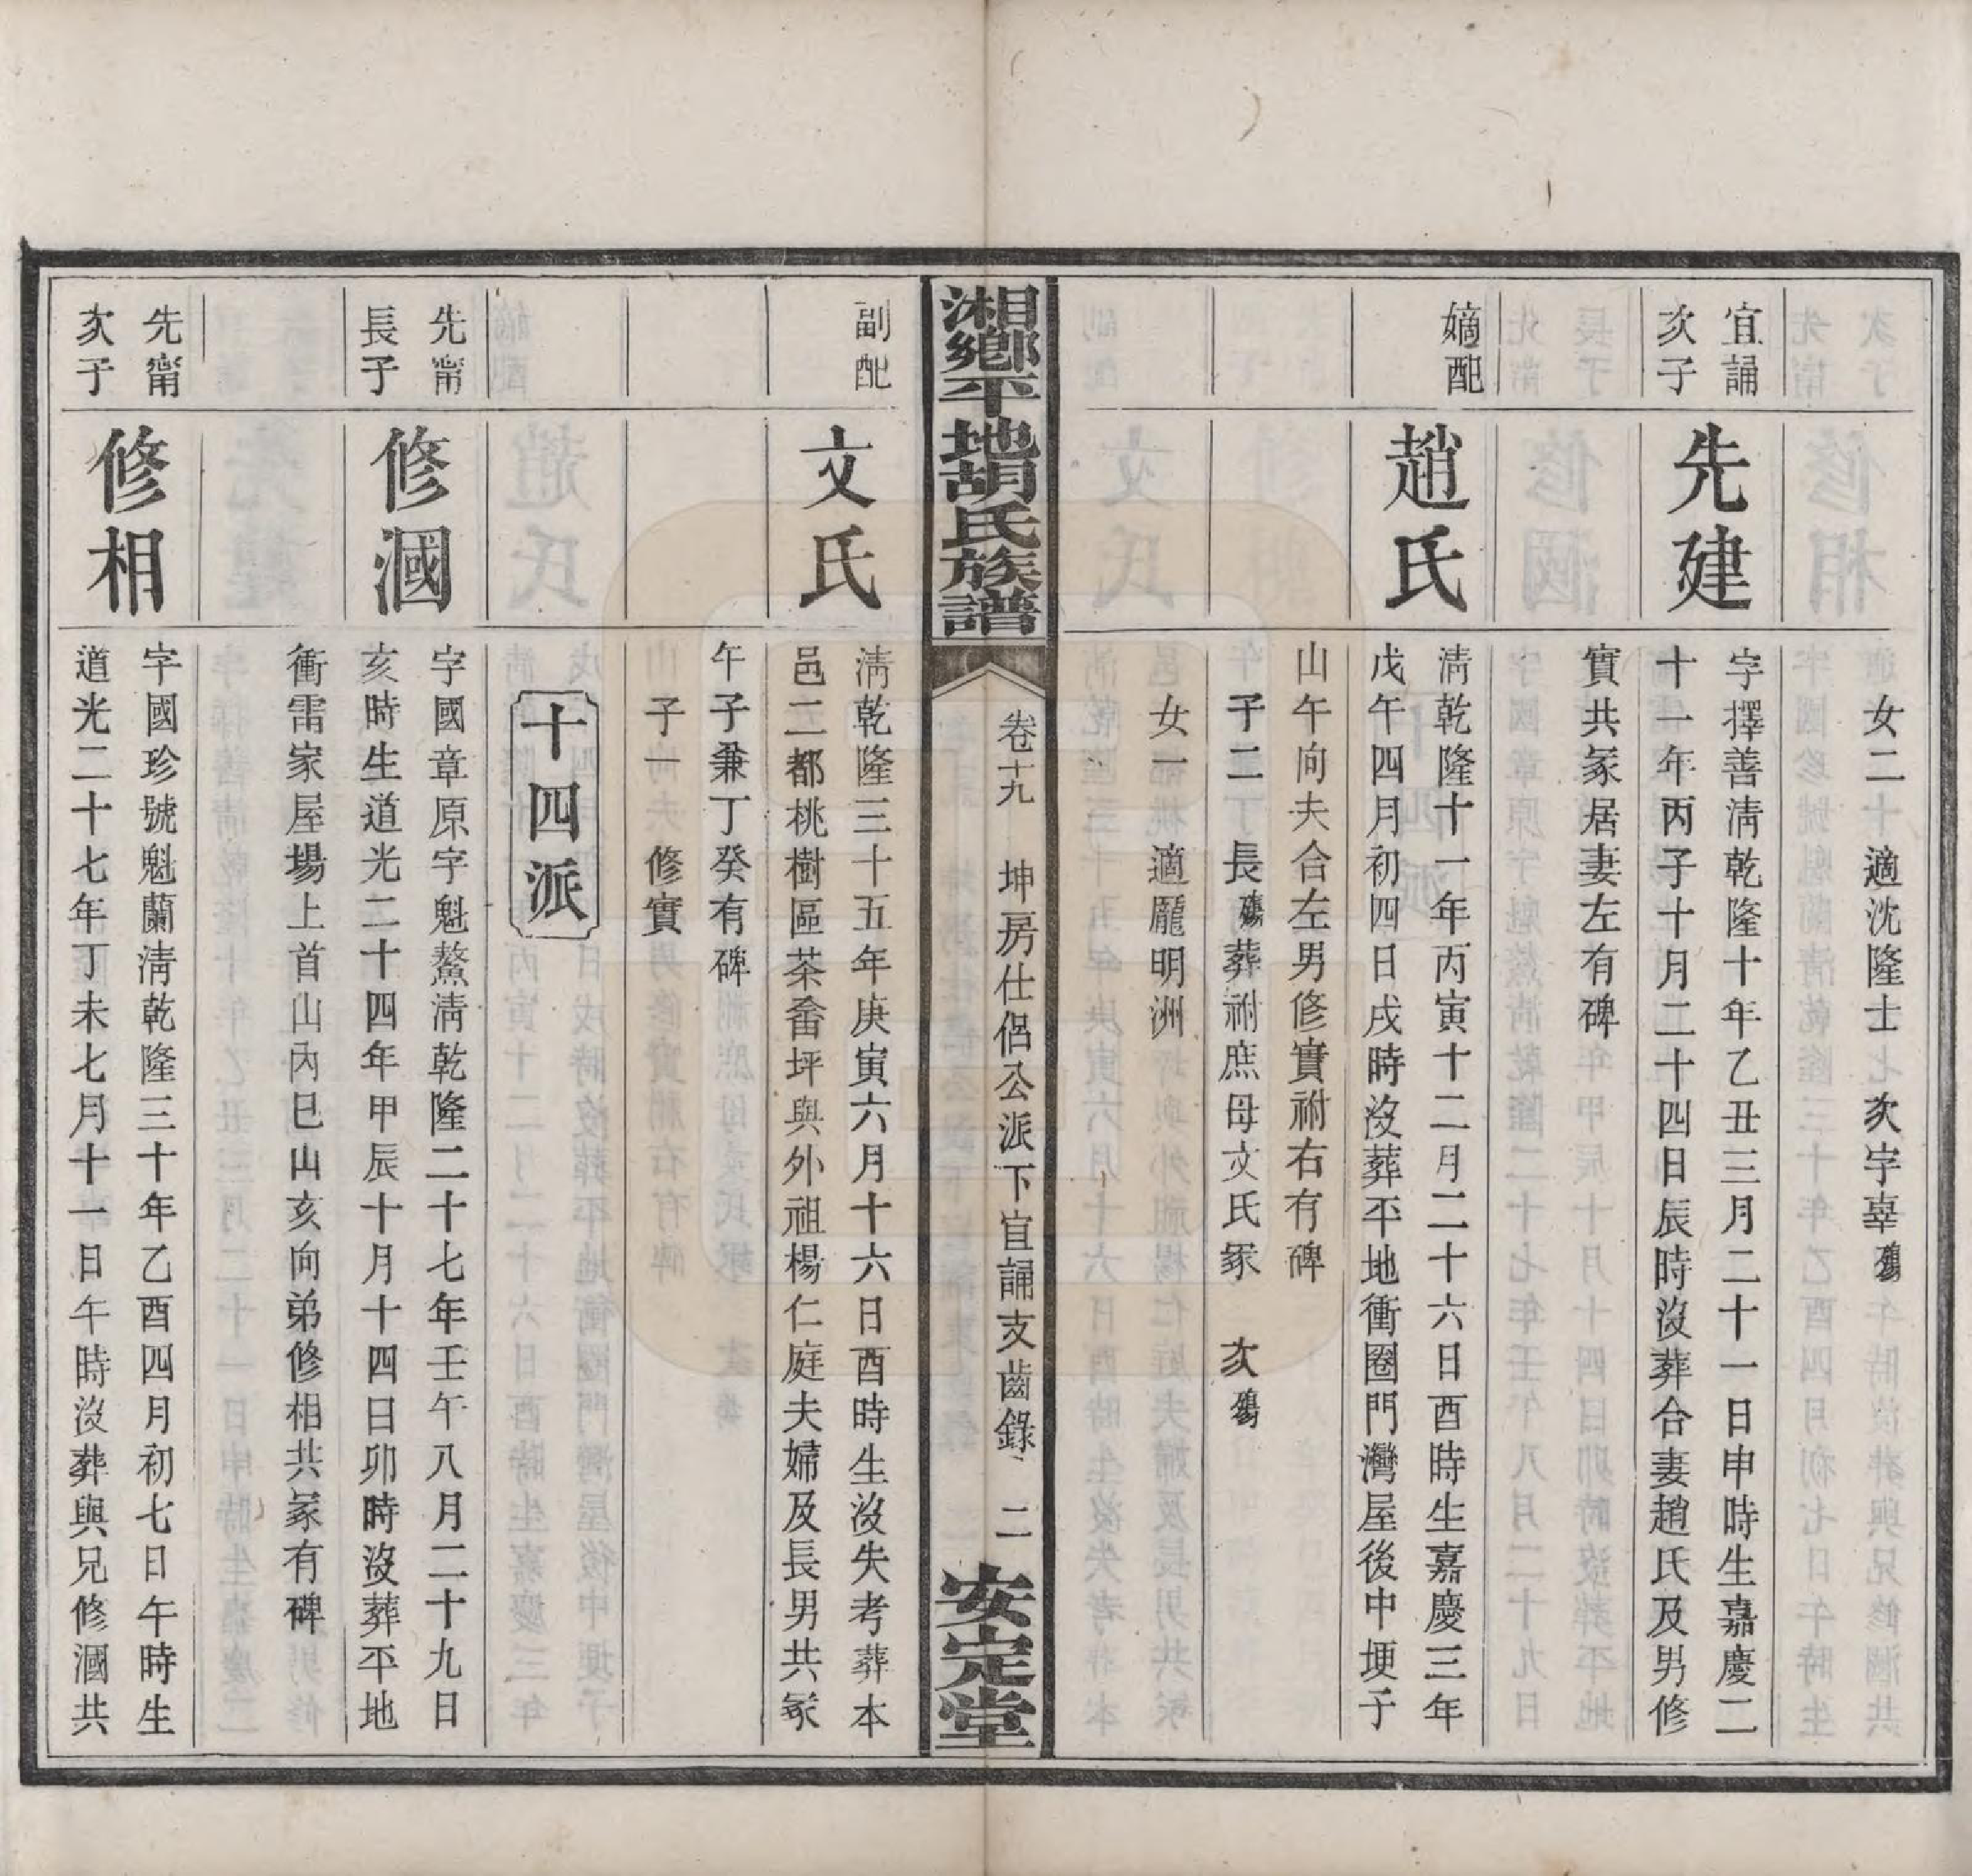 女二　適沈隆士　次字辜殤
宜誦
次子
先建
字擇善淸乾隆十年乙丑三月二十一日申時生嘉慶二
十一年丙子十月二十四日辰時沒葬合妻趙氏及男修
實共冢居妻左有碑
嫡配
趙氏
淸乾隆十一年丙寅十二月二十六日酉時生嘉慶三年
戊午四月初四日戌時沒葬平地衝圈門灣屋後中埂子
山午向夫合左男修實祔右有碑
子二　長殤葬祔庶母文氏冢　次殤
女一　適龎明洲
湘鄉平地胡氏族譜
卷十九　坤房仕侶公派下宜誦支齒錄　二
安定堂
副配
文氏
淸乾隆三十五年庚寅六月十六日酉時生沒失考葬本
邑二都桃樹區茶畬坪與外祖楊仁庭夫婦及長男共冢
午子兼丁癸有碑
子一　修實
十四派
先甯
長子
修漍
字國章原字魁鰲淸乾隆二十七年壬午八月二十九日
亥時生道光二十四年甲辰十月十四日卯時沒葬平地
衝雷家屋場上首山內巳山亥向弟修相共冢有碑
先甯
次子
修相
字國珍號魁蘭淸乾隆三十年乙酉四月初七日午時生
道光二十七年丁未七月十一日午時沒葬與兄修漍共